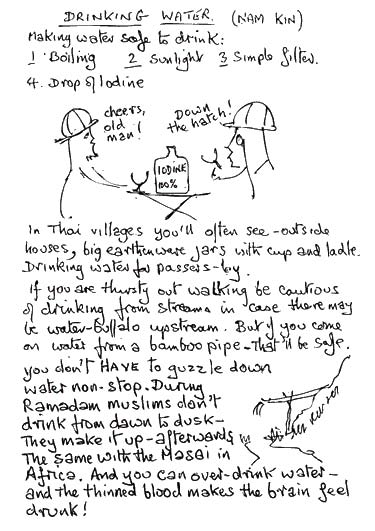 DRINKING WATER. (NAM KIN)
Making water safe to drink:
1 Boiling 2 Sunlight 3 Simple filter.
4. Drop of Iodine
cheers,
old
man!
Down
the hatch!
IODINE
100%
In Thai villages you'll often see-outside
houses, big earthenware jars with cup and ladle.
Drinking water for passers-by.
If you are thirsty out walking be cautious
of drinking from streams in case there may
be water-buffalo upstream. But if you come
on water from a bamboo pipe-that'll be safe.
you don't HAVE to guzzle down
water non-stop. During
Ramadam muslims don't
drink from dawn to dusk-
They make it up-afterwards
The same with the Masai in
Africa. And you can over-drink water-
and the thinned blood makes the brain feel
drunk!